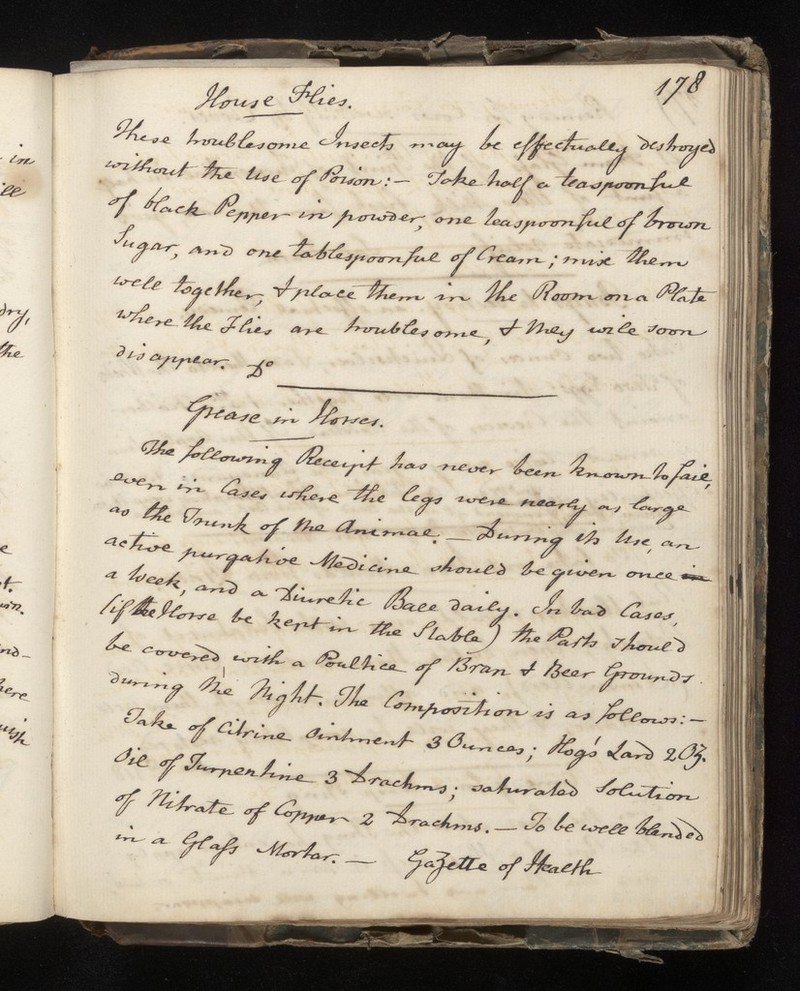 178
House Flies.
These troublesome Insects may be effectually destroyed
without the Use of Poison:— Take half a teaspoonful
of black Pepper in powder, one teaspoonful of brown
Sugar, and one tablespoonful of Cream; mix them
well together, & place them in the Room on a Plate
where the Flies are troublesome, & they will soon
disappear. Do
Grease in Horses.
The following Receipt has never been known to fail,
even in Cases where the legs were nearly as large
as the Trunk of the Animal. — During its Use, an
active purgative Medicine should be given once in
a Week, and a Diuretic Ball daily. In bad Cases,
(if the Horse be kept in the Stable) the Parts should
be covered with a Poultice of Bran & Beer Grounds
during the Night. The Composition is as follows:—
Take of Citrine Ointment 3 Ounces; Hog's Lard 2 Oz.
Oil of Turpentine 3 Drachms; saturated Solution
of Nitrate of Copper 2 Drachms. — To be well blended
in a Glass Mortar. — Gazette of Health
in
ill
dry,
the
e
t.
nd-
here
uish